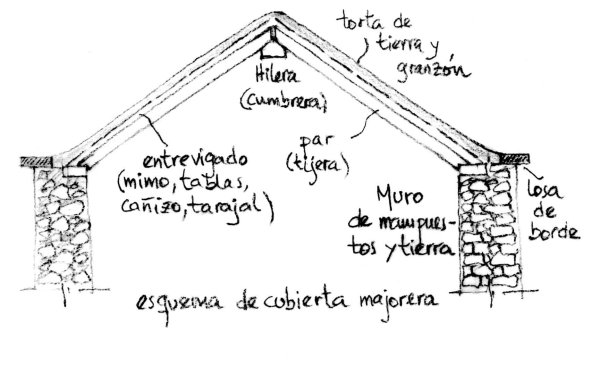 torta de
tierra y
granzón
Hilera
(cumbrera)
par
(tijera)
entrevigado
(mimo, tablas,
cañizo, tarajal)
Muro
de mampues-
tos y tierra
Losa
de
borde
esquema de cubierta majorera